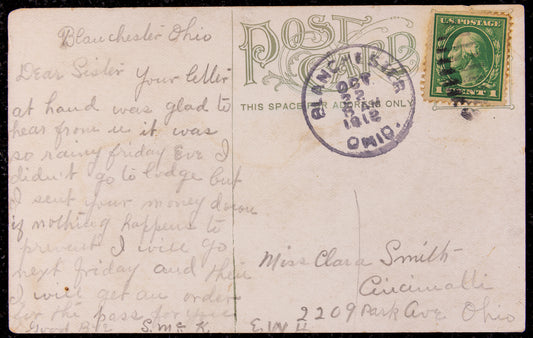 Blanchester Ohio
Dear Sister Your letter
at hand was glad to
hear from u it was
so rainy friday Eve I
didn't go to lodge but
I sent your money down
if nothing happens to
prevent I will go
next friday and then
I will get an order
for the pass for you
Good Bye S. Mc K.
POST CARD
THIS SPACE FOR ADDRESS ONLY
BLANCHESTER
OCT
22
AM
1912
OHIO.
U.S. POSTAGE
1 CENT 1
Miss Clara Smith
Cincinatti
2209 Park Ave Ohio
E. W H